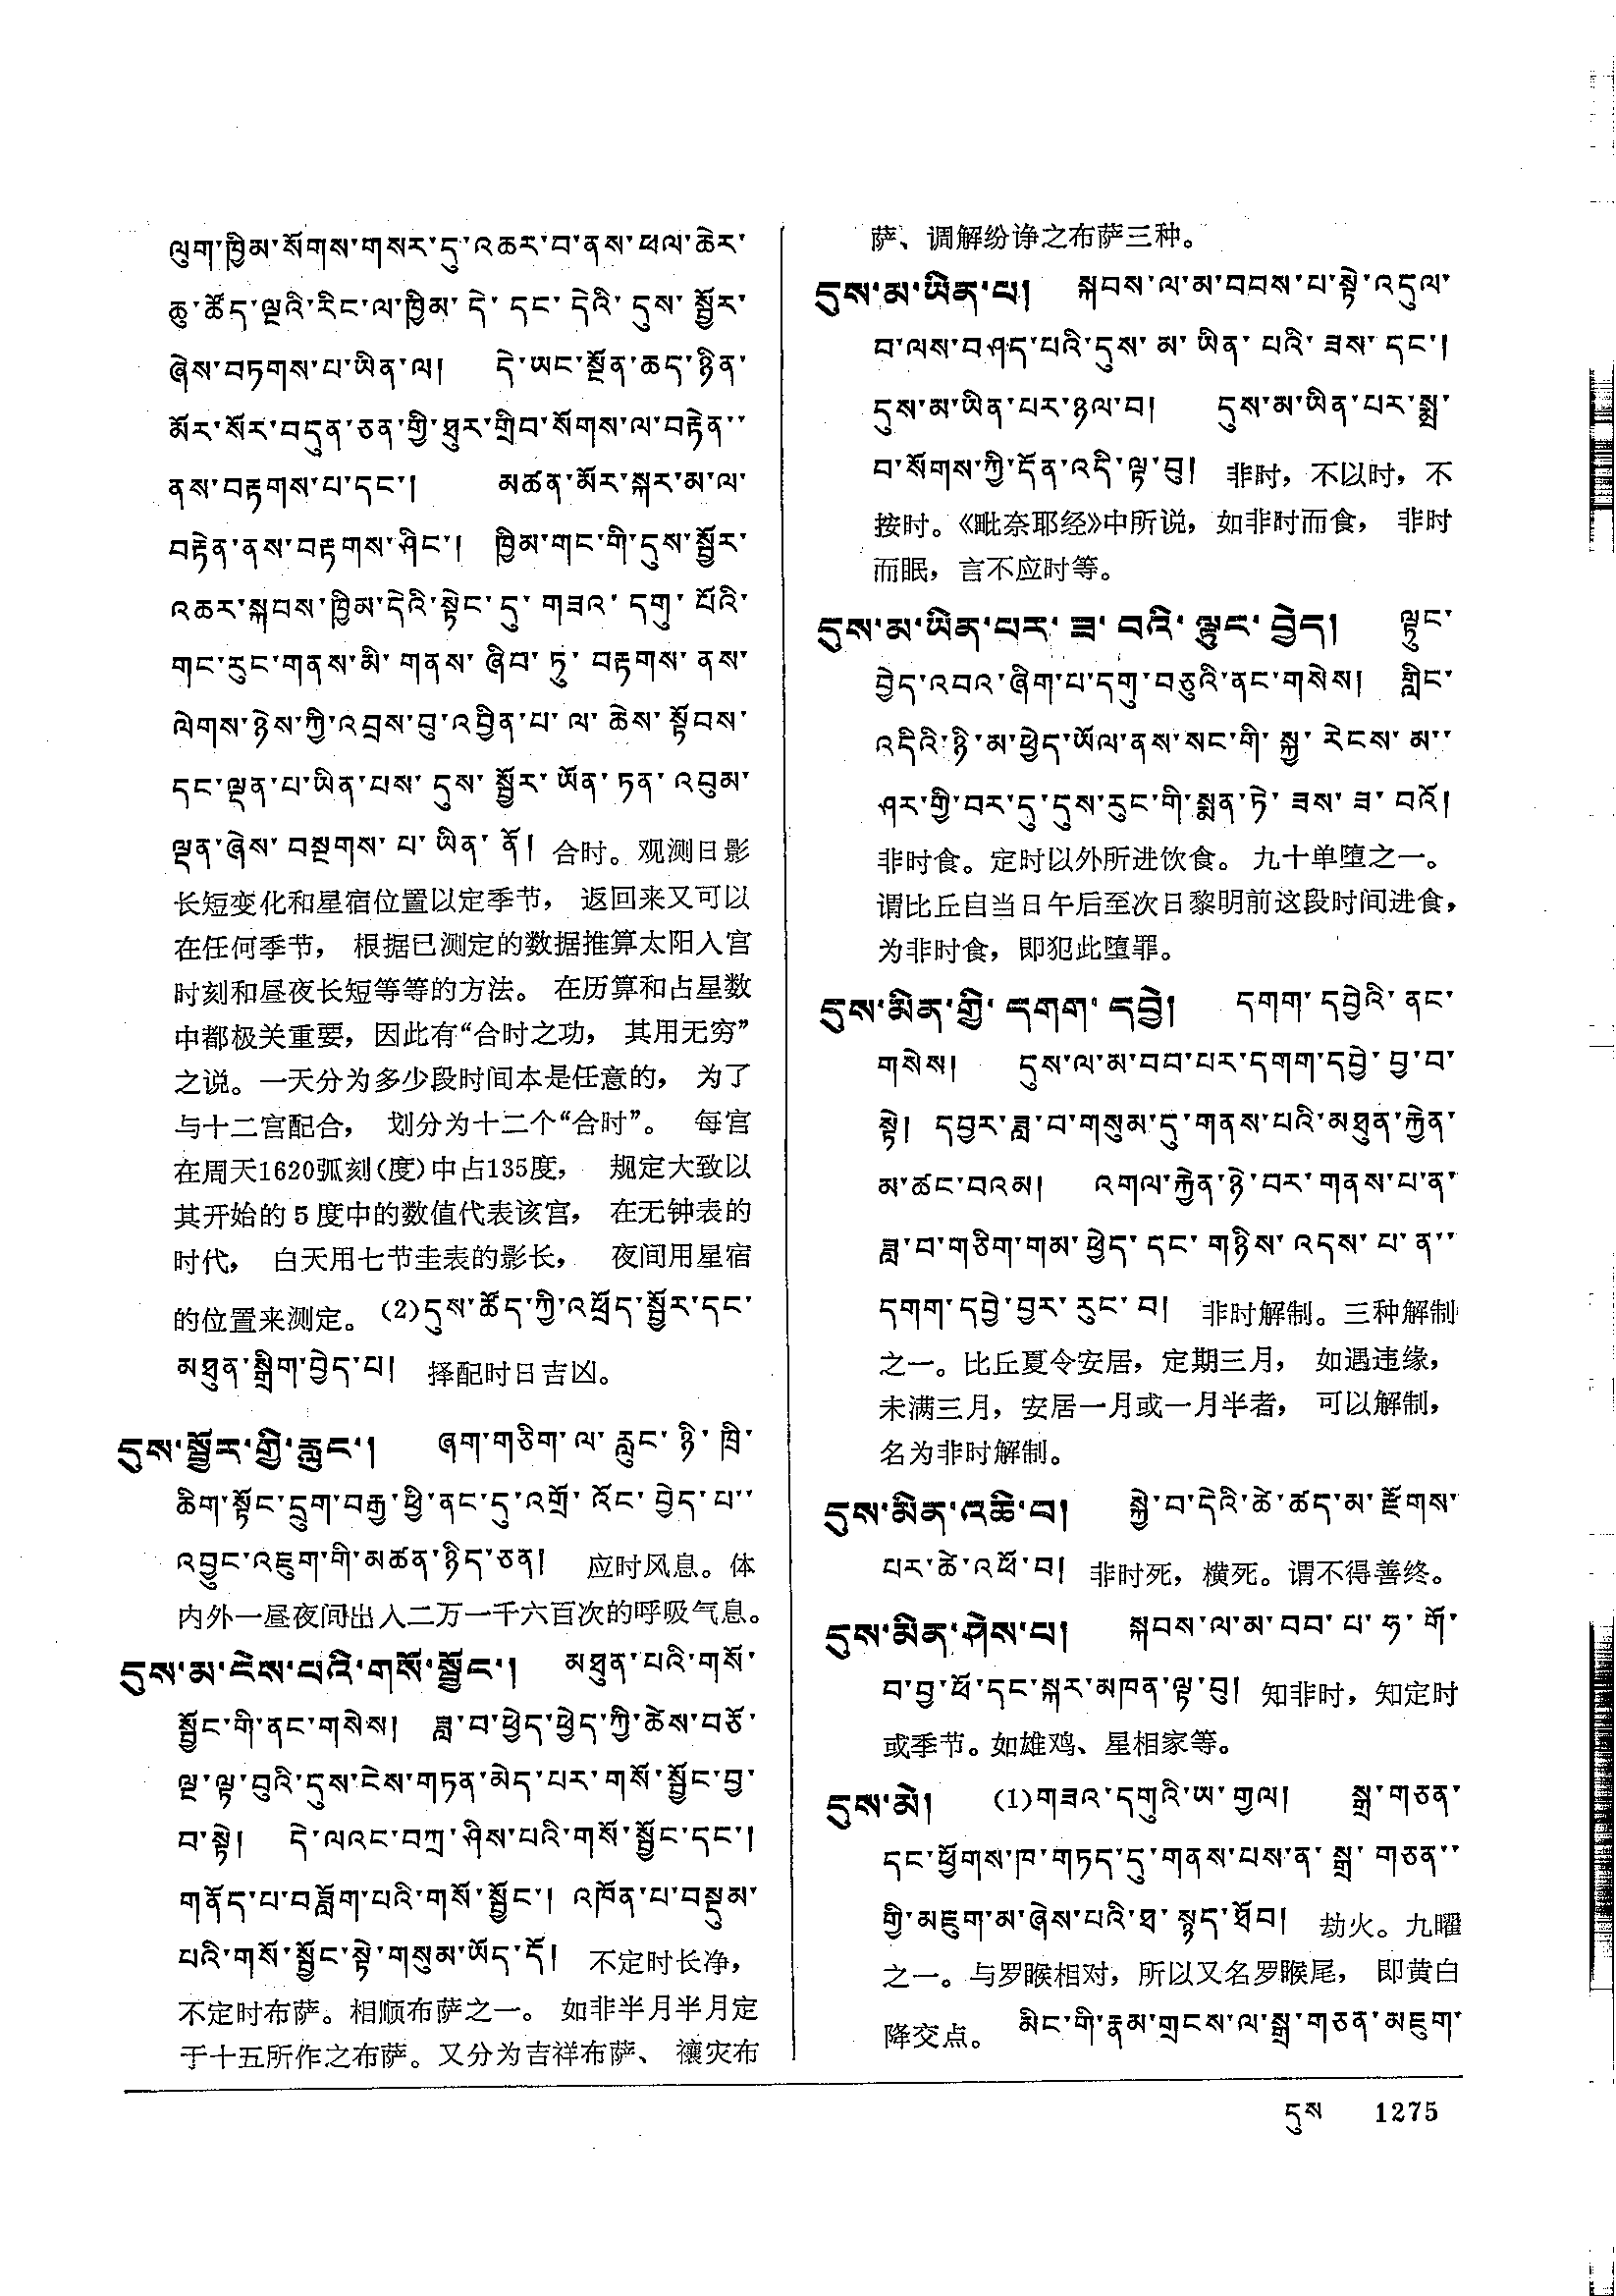 ལུག་ཁྱིམ་སོགས་གསར་དུ་འཆར་བ་ནས་ཕལ་ཆེར་
ཆུ་ཚོད་ལྔའི་རིང་ལ་ཁྱིམ་དེ་དང་དེའི་དུས་སྦྱོར་
ཞེས་བཏགས་པ་ཡིན་ལ། དེ་ཡང་སྔོན་ཆད་ཉིན་
མོར་སོར་བདུན་ཅན་གྱི་ཐུར་གྲིབ་སོགས་ལ་བརྟེན་
ནས་བརྟགས་པ་དང་། མཚན་མོར་སྐར་མ་ལ་
བརྟེན་ནས་བརྟགས་ཤིང་། ཁྱིམ་གང་གི་དུས་སྦྱོར་
འཆར་སྐབས་ཁྱིམ་དེའི་སྟེང་དུ་གཟའ་དགུ་པོའི་
གང་རུང་གནས་མི་གནས་ཞིབ་ཏུ་བརྟགས་ནས་
ལེགས་ཉེས་ཀྱི་འབྲས་བུ་འབྱིན་པ་ལ་ཆེས་སྟོབས་
དང་ལྡན་པ་ཡིན་པས་དུས་སྦྱོར་ཡོན་ཏན་འབུམ་
ལྡན་ཞེས་བསྔགས་པ་ཡིན་ནོ། 合时。观测日影
长短变化和星宿位置以定季节，返回来又可以
在任何季节，根据已测定的数据推算太阳入宫
时刻和昼夜长短等等的方法。在历算和占星数
中都极关重要，因此有“合时之功，其用无穷”
之说。一天分为多少段时间本是任意的，为了
与十二宫配合，划分为十二个“合时”。每宫
在周天1620弧刻(度)中占135度，规定大致以
其开始的5度中的数值代表该宫，在无钟表的
时代，白天用七节圭表的影长，夜间用星宿
的位置来测定。(2)དུས་ཚོད་ཀྱི་འཕྲོད་སྦྱོར་དང་
མཐུན་སྒྲིག་བྱེད་པ། 择配时日吉凶。
དུས་སྦྱོར་གྱི་རླུང་། ཞག་གཅིག་ལ་རླུང་ཉི་ཁྲི་
ཆིག་སྟོང་དྲུག་བརྒྱ་ཕྱི་ནང་དུ་འགྲོ་འོང་བྱེད་པ་
འབྱུང་འཇུག་གི་མཚན་ཉིད་ཅན། 应时风息。体
内外一昼夜间出入二万一千六百次的呼吸气息。
དུས་མ་ངེས་པའི་གསོ་སྦྱོང་། མཐུན་པའི་གསོ་
སྦྱོང་གི་ནང་གསེས། ཟླ་བ་ཕྱེད་ཕྱེད་ཀྱི་ཆེས་བཅོ་
ལྔ་ལྟ་བུའི་དུས་ངེས་གཏན་མེད་པར་གསོ་སྦྱོང་བྱ་
བ་སྟེ། དེ་ལའང་བཀྲ་ཤིས་པའི་གསོ་སྦྱོང་དང་།
གནོད་པ་བཟློག་པའི་གསོ་སྦྱོང་། འཁོན་པ་བསྡུམ་
པའི་གསོ་སྦྱོང་སྟེ་གསུམ་ཡོད་དོ། 不定时长净，
不定时布萨。相顺布萨之一。如非半月半月定
于十五所作之布萨。又分为吉祥布萨、禳灾布
萨、调解纷诤之布萨三种。
དུས་མ་ཡིན་པ། སྐབས་ལ་མ་བབས་པ་སྟེ་འདུལ་
བ་ལས་བཤད་པའི་དུས་མ་ཡིན་པའི་ཟས་དང་།
དུས་མ་ཡིན་པར་ཉལ་བ། དུས་མ་ཡིན་པར་སྨྲ་
བ་སོགས་ཀྱི་དོན་འདི་ལྟ་བུ། 非时，不以时，不
按时。《毗奈耶经》中所说，如非时而食，非时
而眠，言不应时等。
དུས་མ་ཡིན་པར་ཟ་བའི་ལྟུང་བྱེད། ལྟུང་
བྱེད་འབའ་ཞིག་པ་དགུ་བཅུའི་ནང་གསེས། གླིང་
འདིའི་ཉི་མ་ཕྱེད་ཡོལ་ནས་སང་གི་སྐྱ་རེངས་མ་
ཤར་གྱི་བར་དུ་དུས་རུང་གི་སྨན་ཏེ་ཟས་ཟ་བའོ།
非时食。定时以外所进饮食。九十单堕之一。
谓比丘自当日午后至次日黎明前这段时间进食，
为非时食，即犯此堕罪。
དུས་མིན་གྱི་དགག་དབྱེ། དགག་དབྱེའི་ནང་
གསེས། དུས་ལ་མ་བབ་པར་དགག་དབྱེ་བྱ་བ་
སྟེ། དབྱར་ཟླ་བ་གསུམ་དུ་གནས་པའི་མཐུན་རྐྱེན་
མ་ཚང་བའམ། འགལ་རྐྱེན་ཉེ་བར་གནས་པ་ན་
ཟླ་བ་གཅིག་གམ་ཕྱེད་དང་གཉིས་འདས་པ་ན་
དགག་དབྱེ་བྱར་རུང་བ། 非时解制。三种解制
之一。比丘夏令安居，定期三月，如遇违缘，
未满三月，安居一月或一月半者，可以解制，
名为非时解制。
དུས་མིན་འཆི་བ། སྐྱེ་བ་དེའི་ཚེ་ཚད་མ་རྫོགས་
པར་ཚེ་འཕོ་བ། 非时死，横死。谓不得善终。
དུས་མིན་ཤེས་པ། སྐབས་ལ་མ་བབ་པ་ཧ་གོ་
བ་བྱ་ཕོ་དང་སྐར་མཁན་ལྟ་བུ། 知非时，知定时
或季节。如雄鸡、星相家等。
དུས་མེ། (1)གཟའ་དགུའི་ཡ་གྱལ། སྒྲ་གཅན་
དང་ཕྱོགས་ཁ་གཏད་དུ་གནས་པས་ན་སྒྲ་གཅན་
གྱི་མཇུག་མ་ཞེས་པའི་ཐ་སྙད་ཐོབ། 劫火。九曜
之一。与罗睺相对，所以又名罗睺尾，即黄白
降交点。 མིང་གི་རྣམ་གྲངས་ལ་སྒྲ་གཅན་མཇུག་
དུས 1275